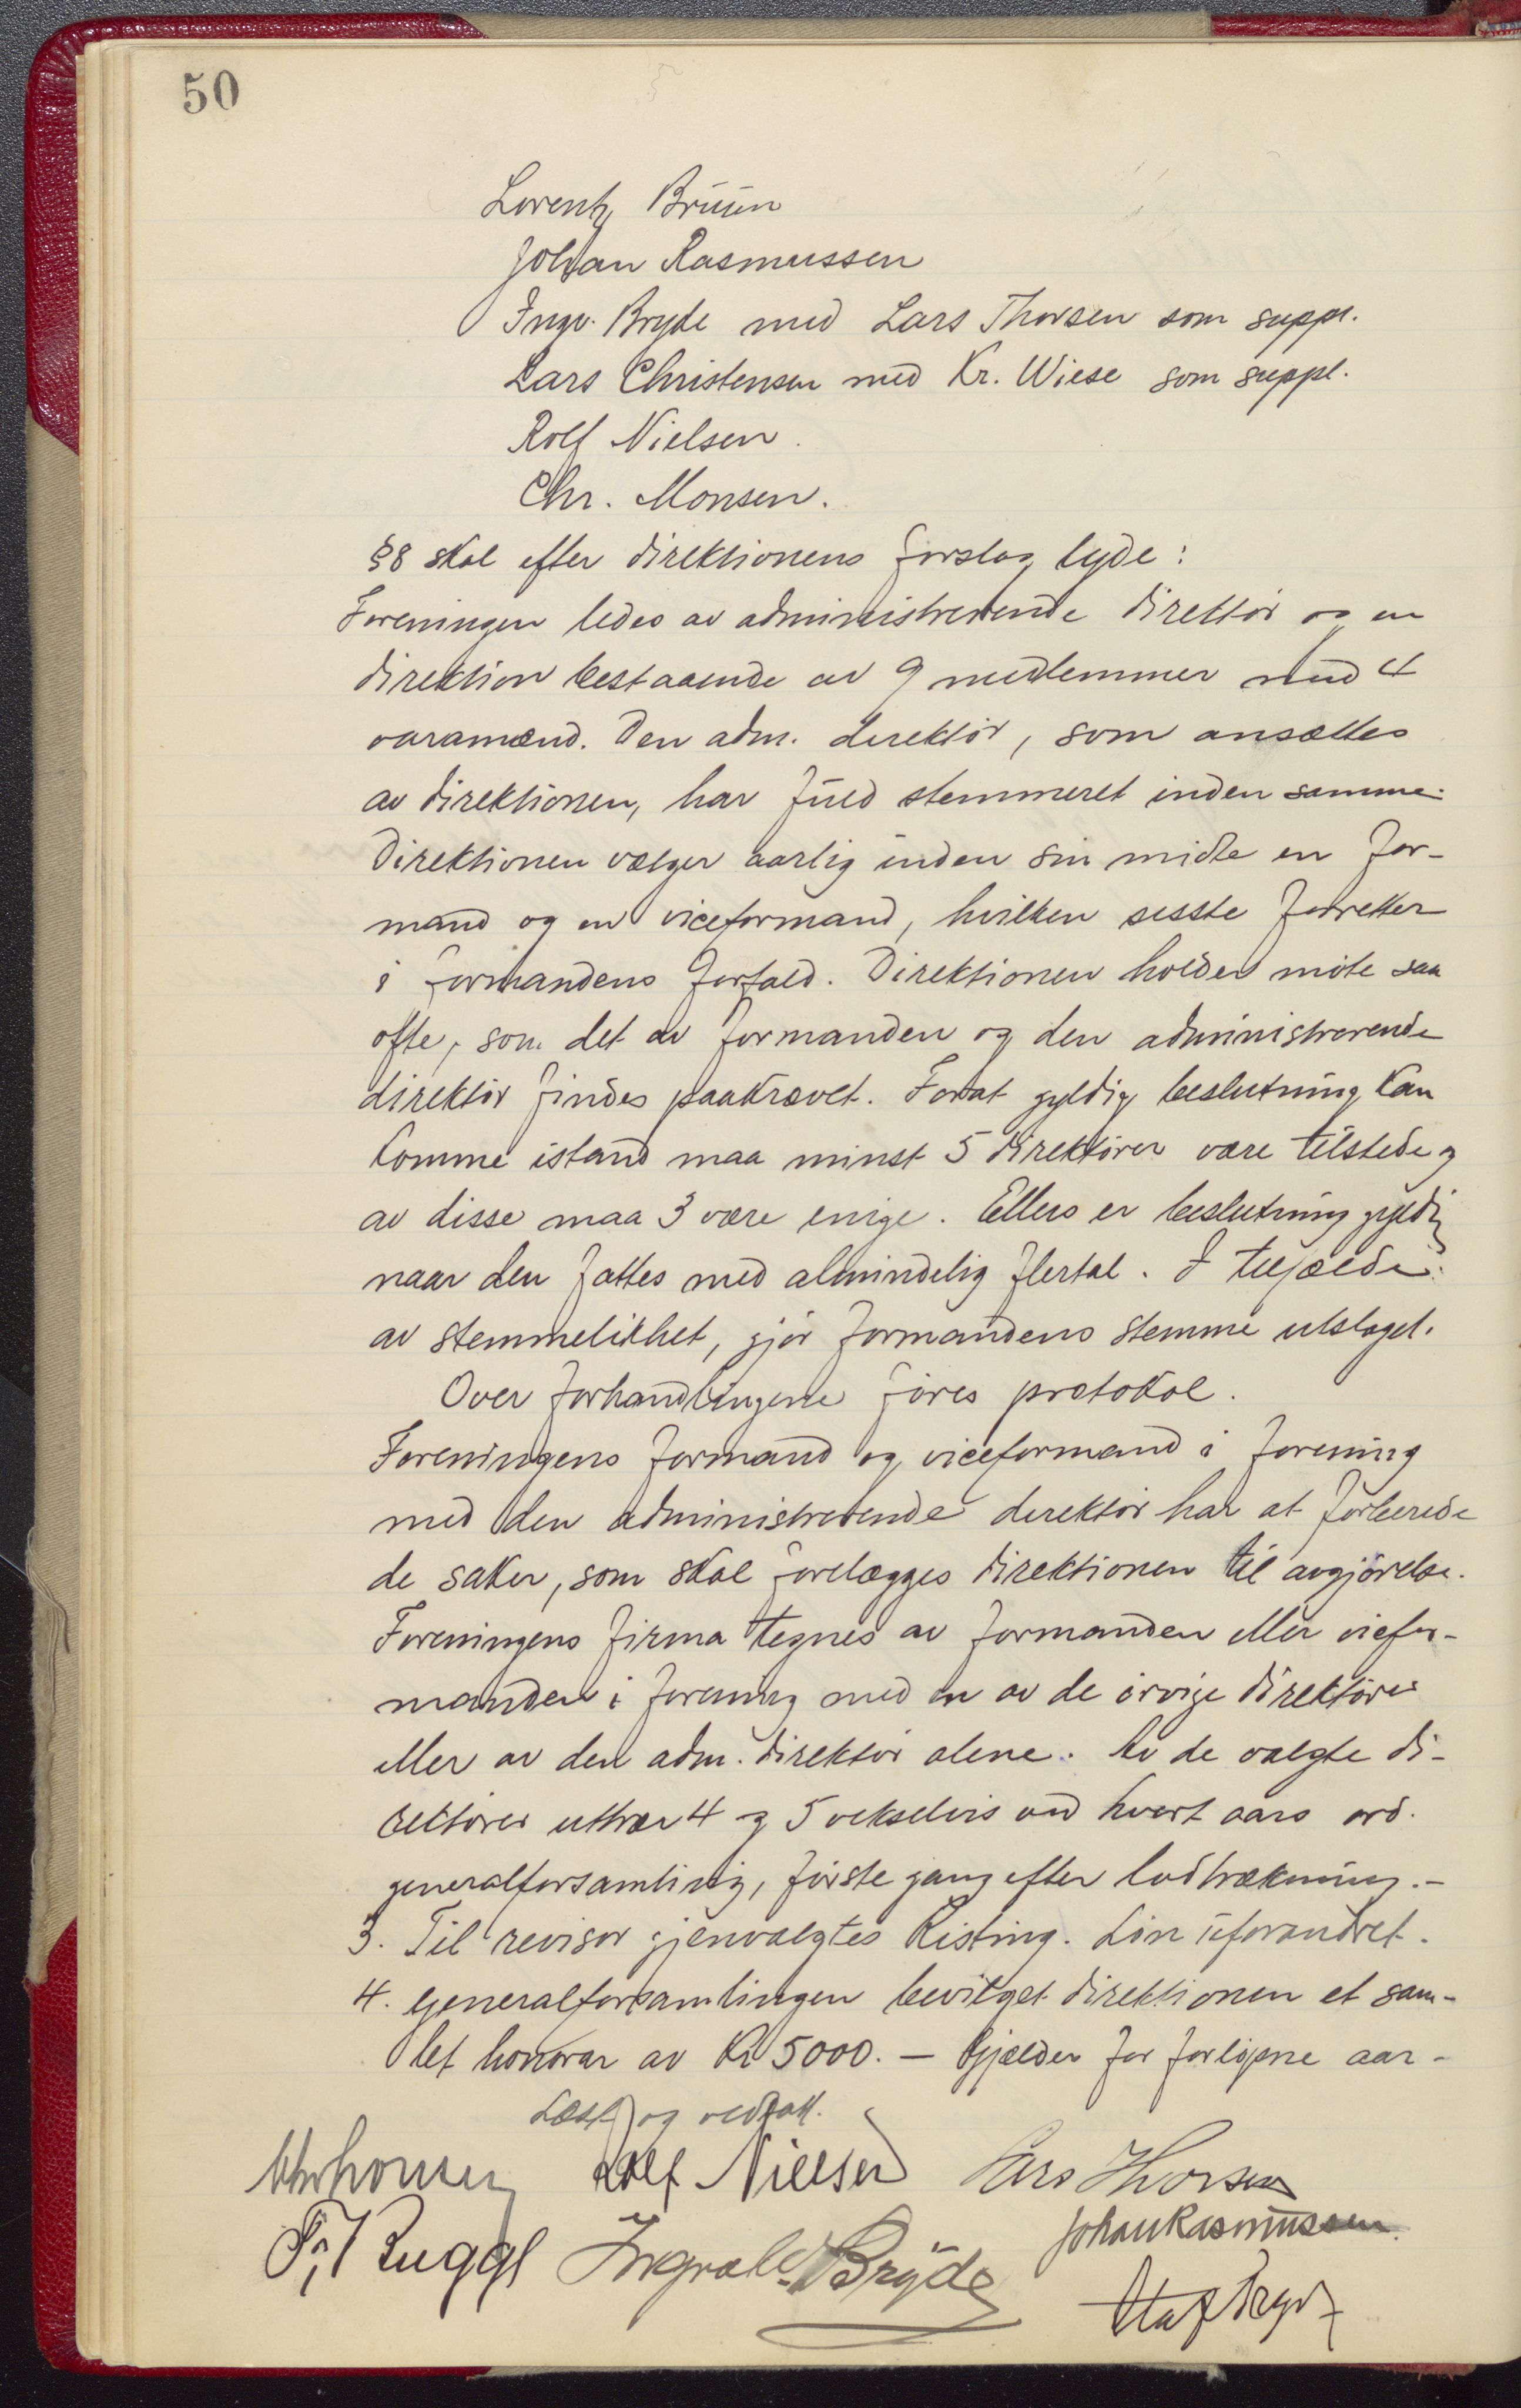 50
Lorentz Bruun
Johan Rasmussen
Ingv. Bryde med Lars Thorsen som suppl.
Lars Christensen med Kr. Wiese som suppl.
Rolf Nielsen.
Chr. Monsen.
§8 skal efter direktionens forslag lyde:
Foreningen ledes av administrerende direktør og en
direktion bestaaende av 9 medlemmer med 4
varamænd. Den adm. direktør, som ansættes
av direktionen, har fuld stemmeret inden samme.
Direktionen vælger aarlig inden sin midte en for-
mand og en viceformand, hvilken sisste forretter
i formandens forfald. Direktionen holder møte saa
ofte, som det av formanden og den administrerende
direktør findes paakrævet. Forat gyldig beslutning kan
komme istand maa minst 5 direktører være tilstede og
av disse maa 3 være enige. Ellers er beslutning gyldig
naar den fattes med almindelig flertal. I tilfælde
av stemmelikhet, gjør formandens stemme utslaget.
Over forhandlingene føres protokol.
Foreningens formand og viceformand i forening
med den administrerende direktør har at forberede
de saker, som skal forelægges direktionen til avgjørelse.
Foreningens firma tegnes av formanden eller vicefor-
manden i forening med en av de øvrige direktører
eller av den adm. direktør alene. Av de valgte di-
rektører uttrær 4 og 5 vekselvis ved hvert aars ord.
generalforsamling, første gang efter lodtrækning.-
3. Til revisor gjenvalgtes Risting. Løn uforandret.
4. Generalforsamlingen bevilget direktionen et sam-
let honorar av Kr 5000. — Gjælder for forløpne aar-
Læst og vedtatt.
Rolf Nielsen Lars Thorsen
Ingvald Bryde Johan Rasmussen